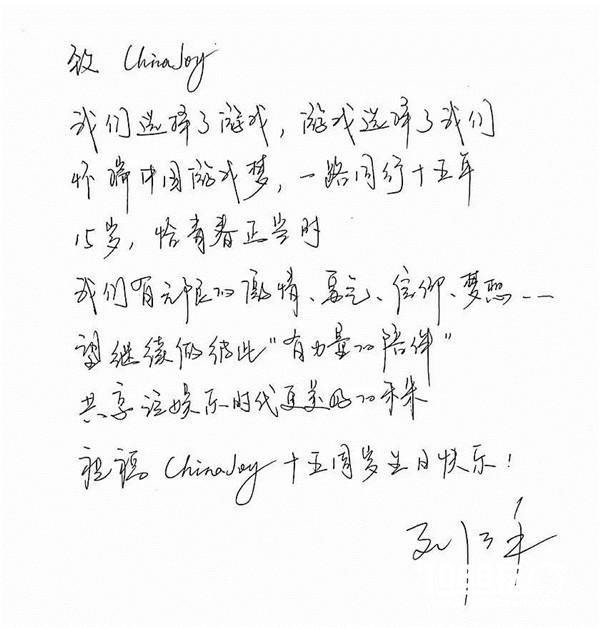 致 ChinaJoy
我们选择了游戏，游戏选择了我们
怀揣中国游戏梦，一路同行十五年
15岁，恰青春正当时
我们有无限的激情、勇气、信仰、梦想……
继续做彼此“有力量的陪伴”
共享泛娱乐时代更美好的未来
祝福 ChinaJoy 十五周岁生日快乐！